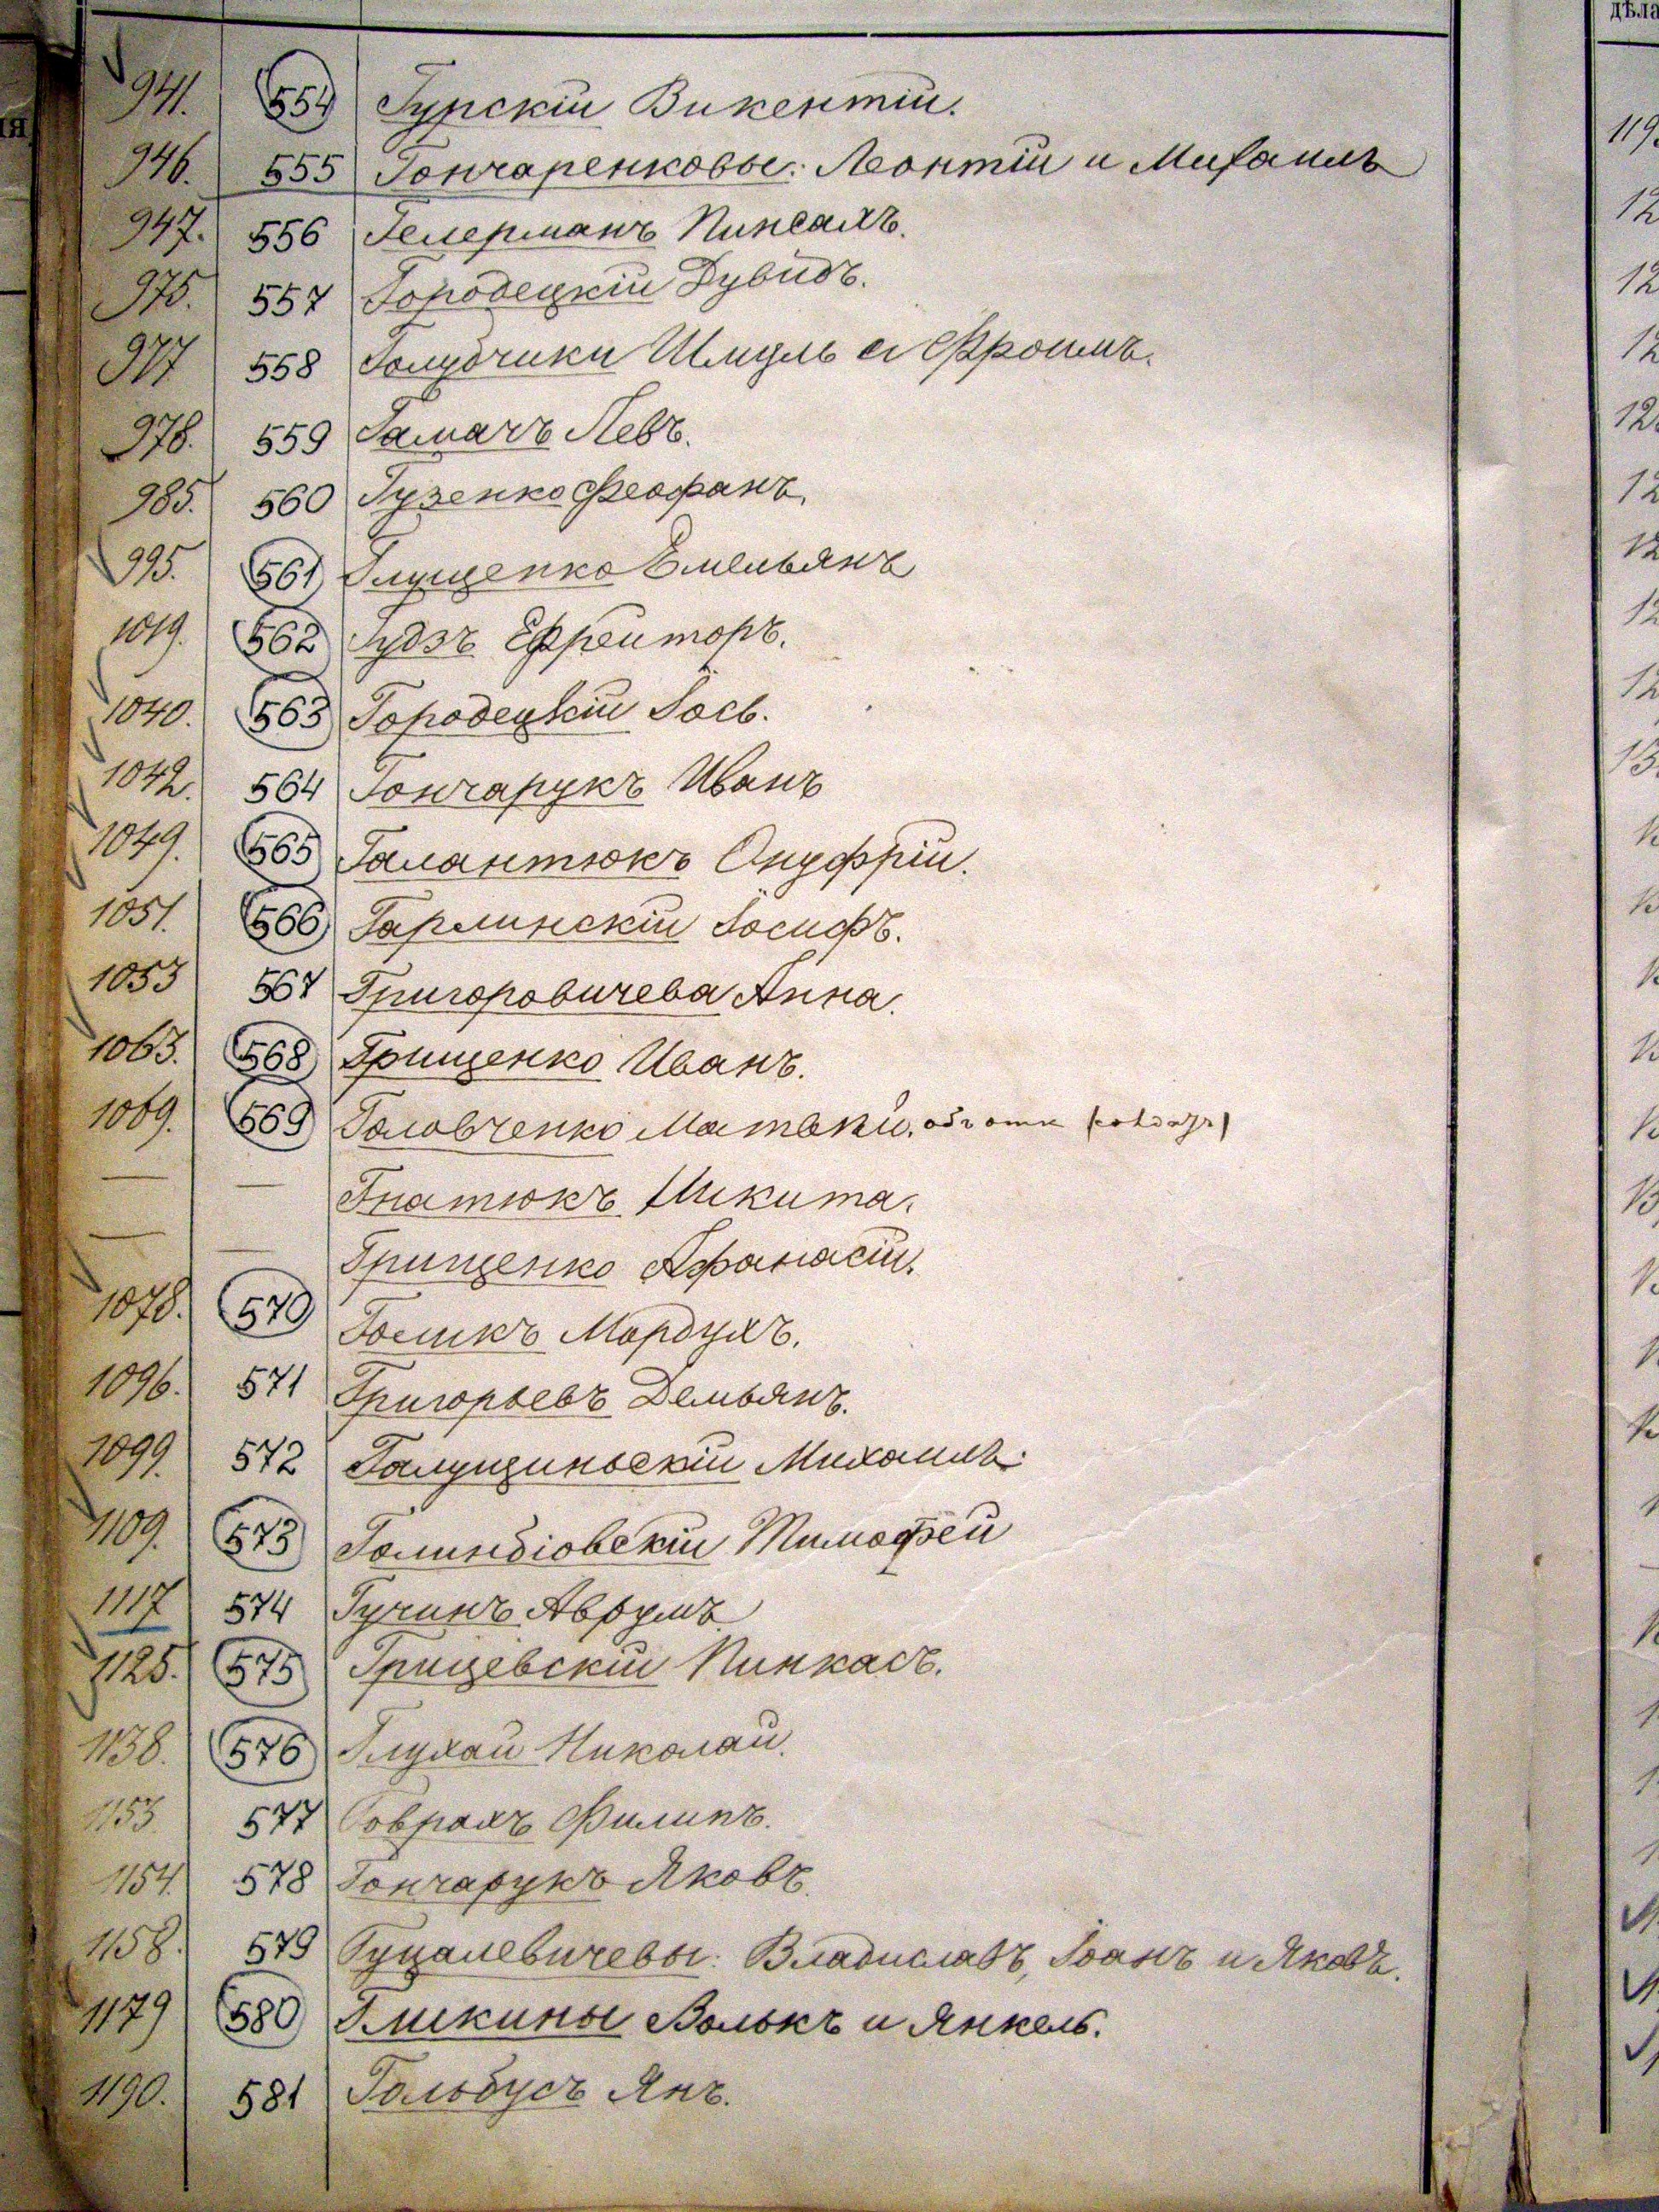 дѣла
941. 554 Гурскій Викентій.
946. 555 Гончаренковы: Леонтій и Михаилъ
947. 556 Гелерманъ Пинсахъ.
975. 557 Городецкій Дувидъ.
977 558 Голубчики Шмуль и Фроимъ.
978. 559 Гамачъ Левъ.
985. 560 Гузенко Феофанъ.
995. 561 Глущенко Емельянъ
1019. 562 Гудзъ Ефрейторъ.
1040. 563 Городецкій Іось.
1042. 564 Гончарукъ Иванъ
1049. 565 Галантюкъ Онуфрій.
1051. 566 Гарлинскій Іосифъ.
1053 567 Григоровичева Анна.
1063. 568 Грищенко Иванъ.
1069. 569 Головченко Матвѣй.
— — Гнатюкъ Никита.
— — Грищенко Афанасій.
1078. 570 Голикъ Мордухъ.
1096. 571 Григорьевъ Демьянъ.
1099. 572 Галущиньскій Михаилъ.
1109. 573 Голинбіовскій Тимофей
1117 574 Гучинъ Аврумъ
1125. 575 Грицевскій Пинкасъ.
1138. 576 Глухай Николай.
1153. 577 Говрахъ Филипъ.
1154. 578 Гончарукъ Яковъ.
1158. 579 Гуцалевичевы: Владиславъ, Іоанъ и Яковъ.
1179 580 Гликины Волькъ и Янкель.
1190. 581 Гольбусъ Янъ.